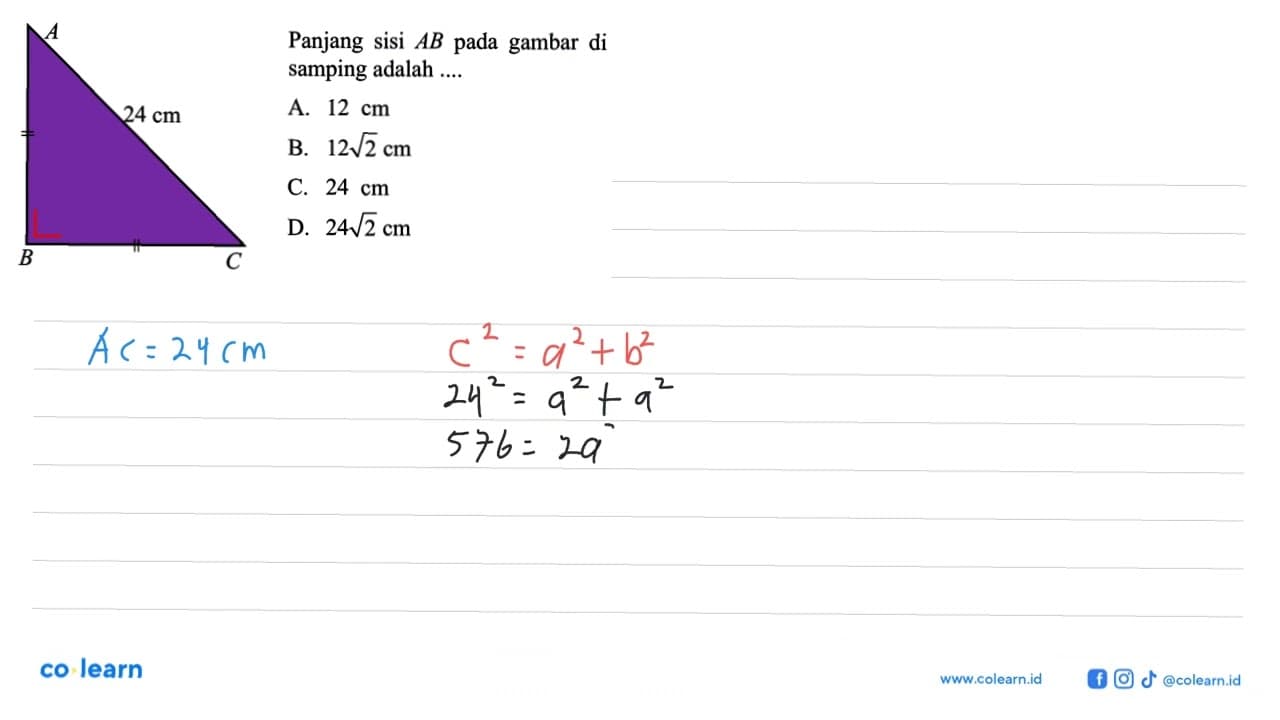 A
24 cm
B
C
Panjang sisi AB pada gambar di
samping adalah ....
A. 12 cm
B. 12√2 cm
C. 24 cm
D. 24√2 cm
AC = 24 cm
c² = a² + b²
24² = a² + a²
576 = 2a²
co learn
www.colearn.id
@colearn.id